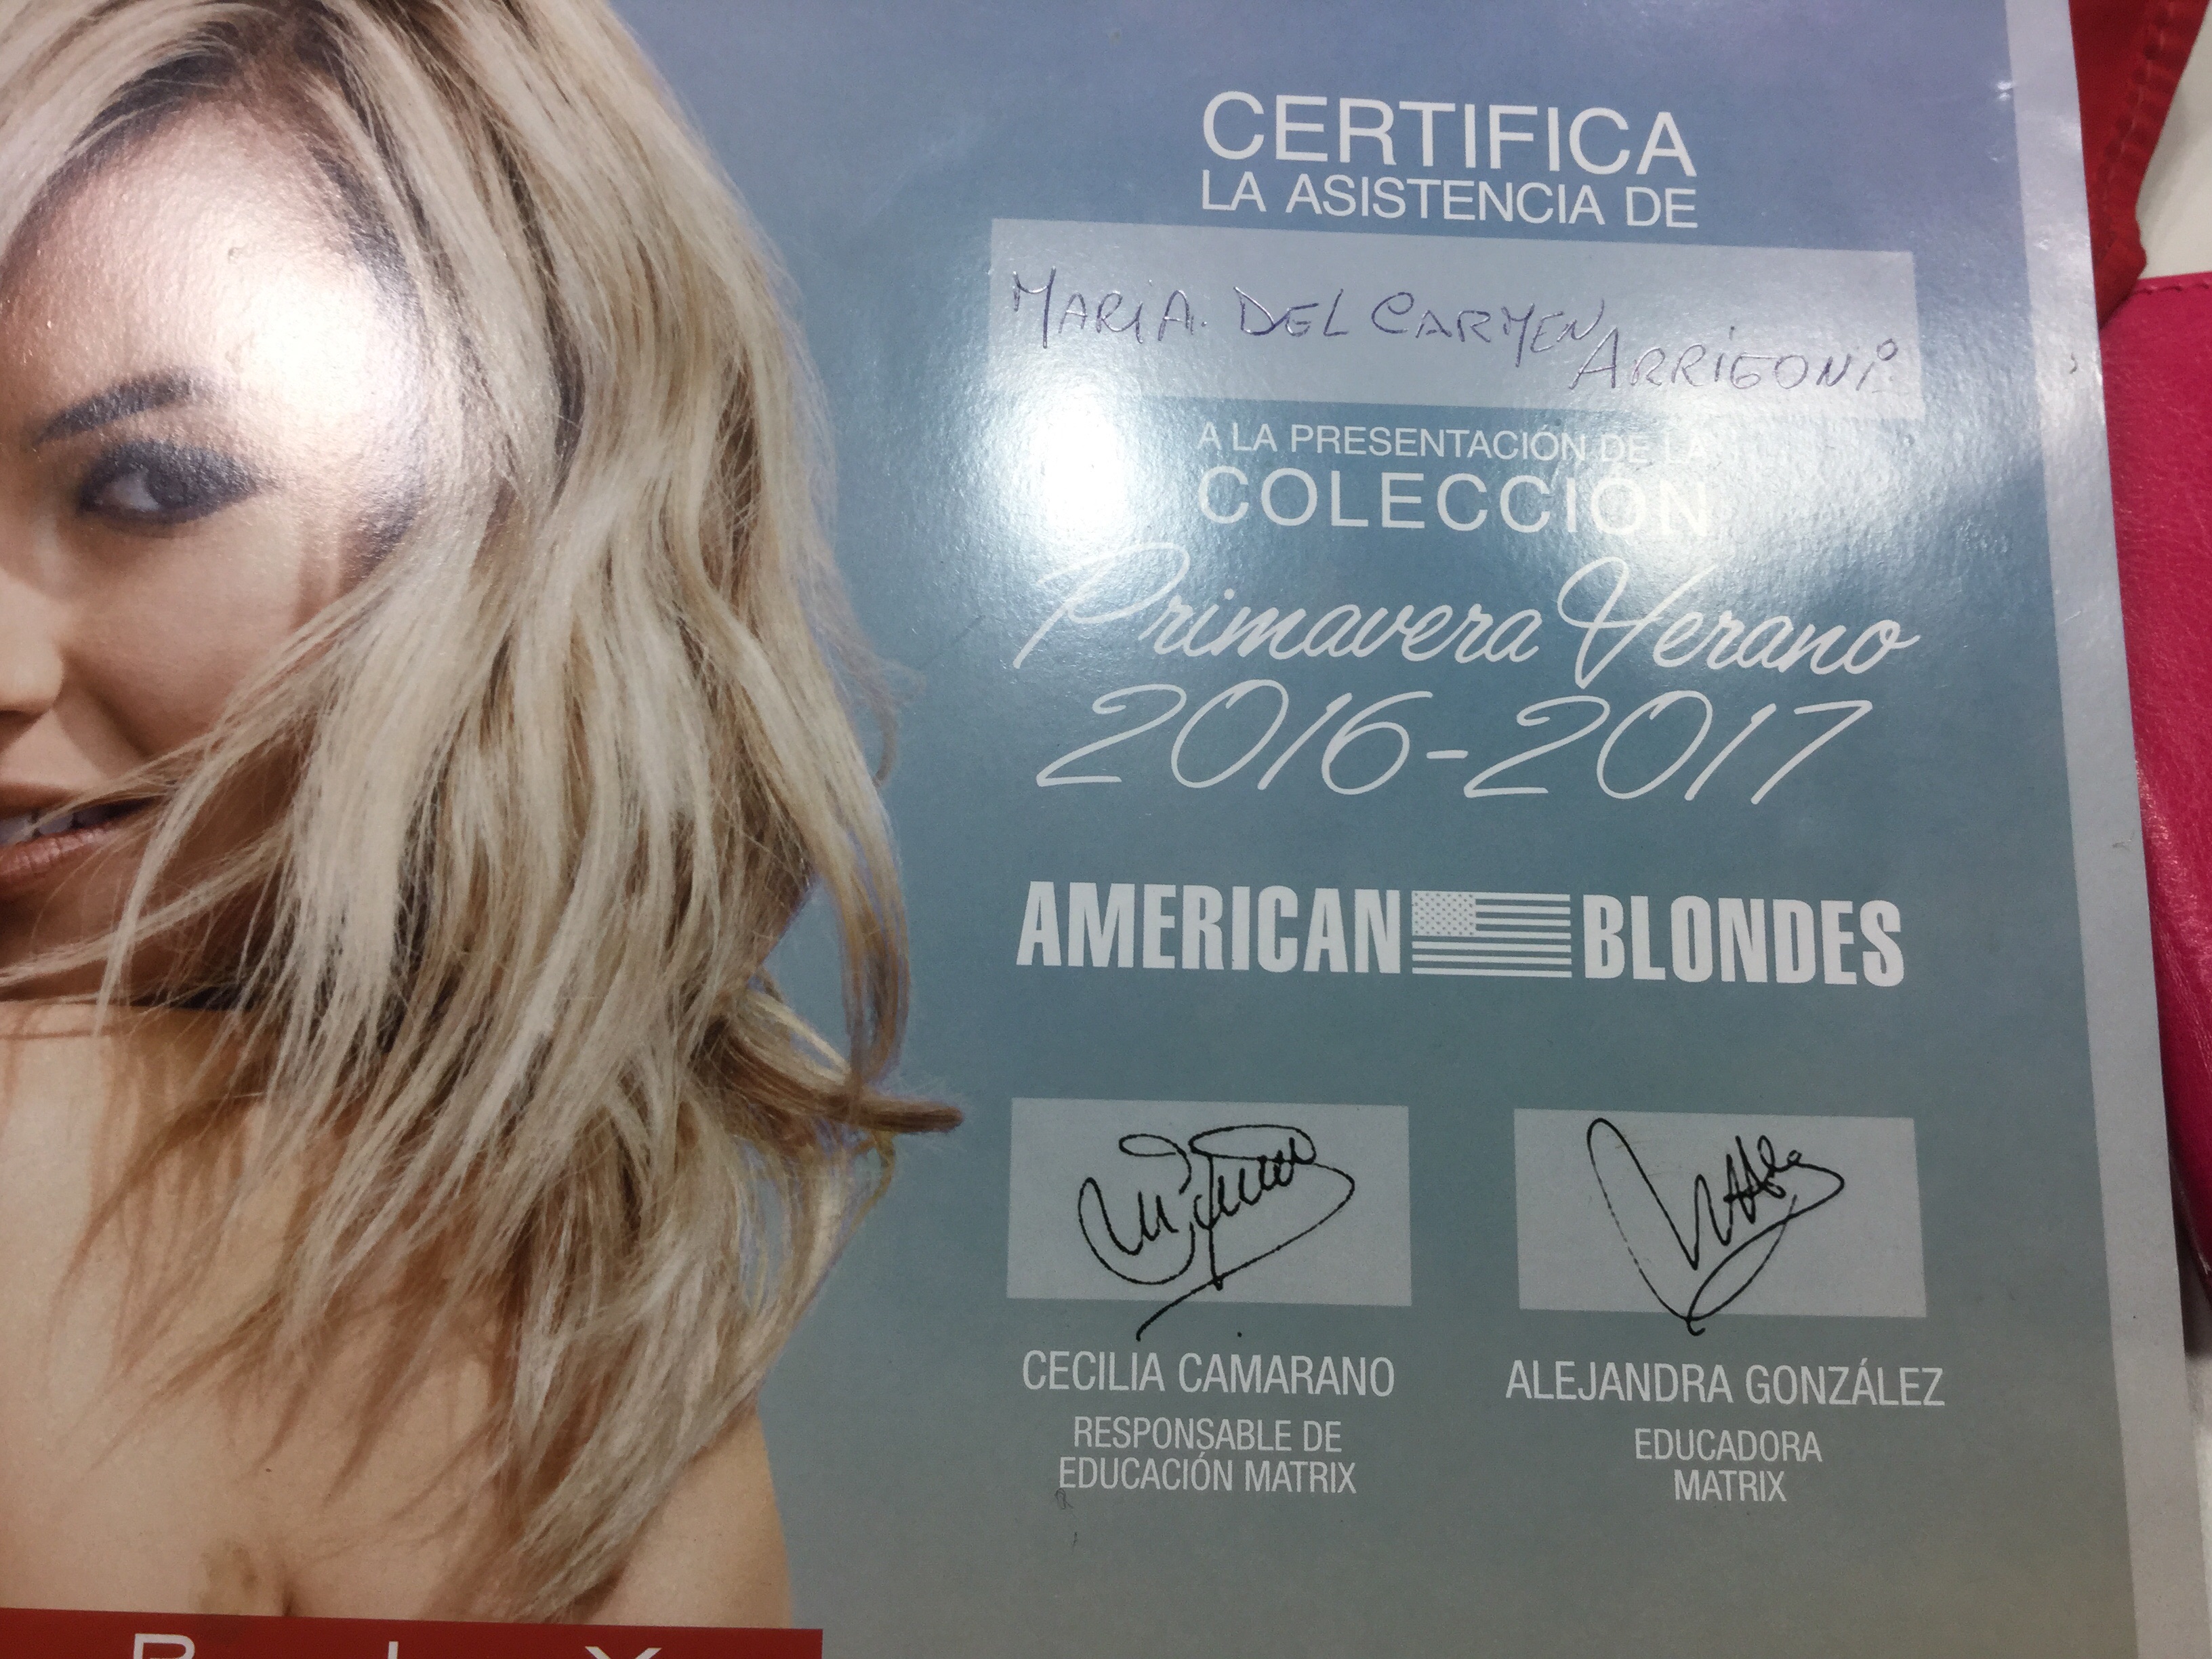 CERTIFICA
LA ASISTENCIA DE
MARIA. DEL CARMEN ARRIGONI
A LA PRESENTACIÓN DE LA
COLECCIÓN
Primavera Verano
2016-2017
AMERICAN BLONDES
CECILIA CAMARANO
RESPONSABLE DE
EDUCACIÓN MATRIX
ALEJANDRA GONZÁLEZ
EDUCADORA
MATRIX
R I X